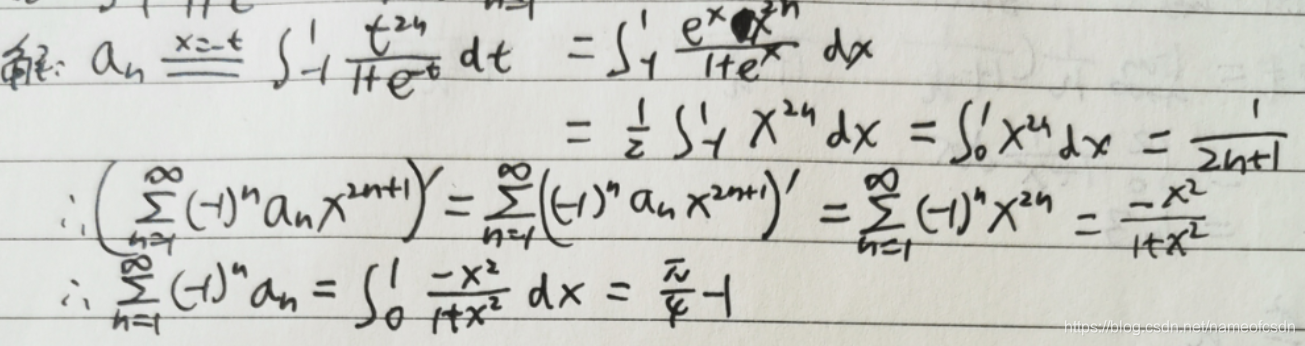 解: aₙ \xlongequal{x=-t} ∫₋₁¹ \frac{t^{2n}}{1+e^{-t}} dt = ∫₋₁¹ \frac{e^x x^{2n}}{1+e^x} dx
= \frac{1}{2} ∫₋₁¹ x^{2n} dx = ∫₀¹ x^{2n} dx = \frac{1}{2n+1}
∴ (\sum_{n=1}^{∞} (-1)^n aₙ x^{2n+1})' = \sum_{n=1}^{∞} ((-1)^n aₙ x^{2n+1})' = \sum_{n=1}^{∞} (-1)^n x^{2n} = \frac{-x^2}{1+x^2}
∴ \sum_{n=1}^{∞} (-1)^n aₙ = ∫₀¹ \frac{-x^2}{1+x^2} dx = \frac{π}{4} -1
https://blog.csdn.net/nameofcsdn